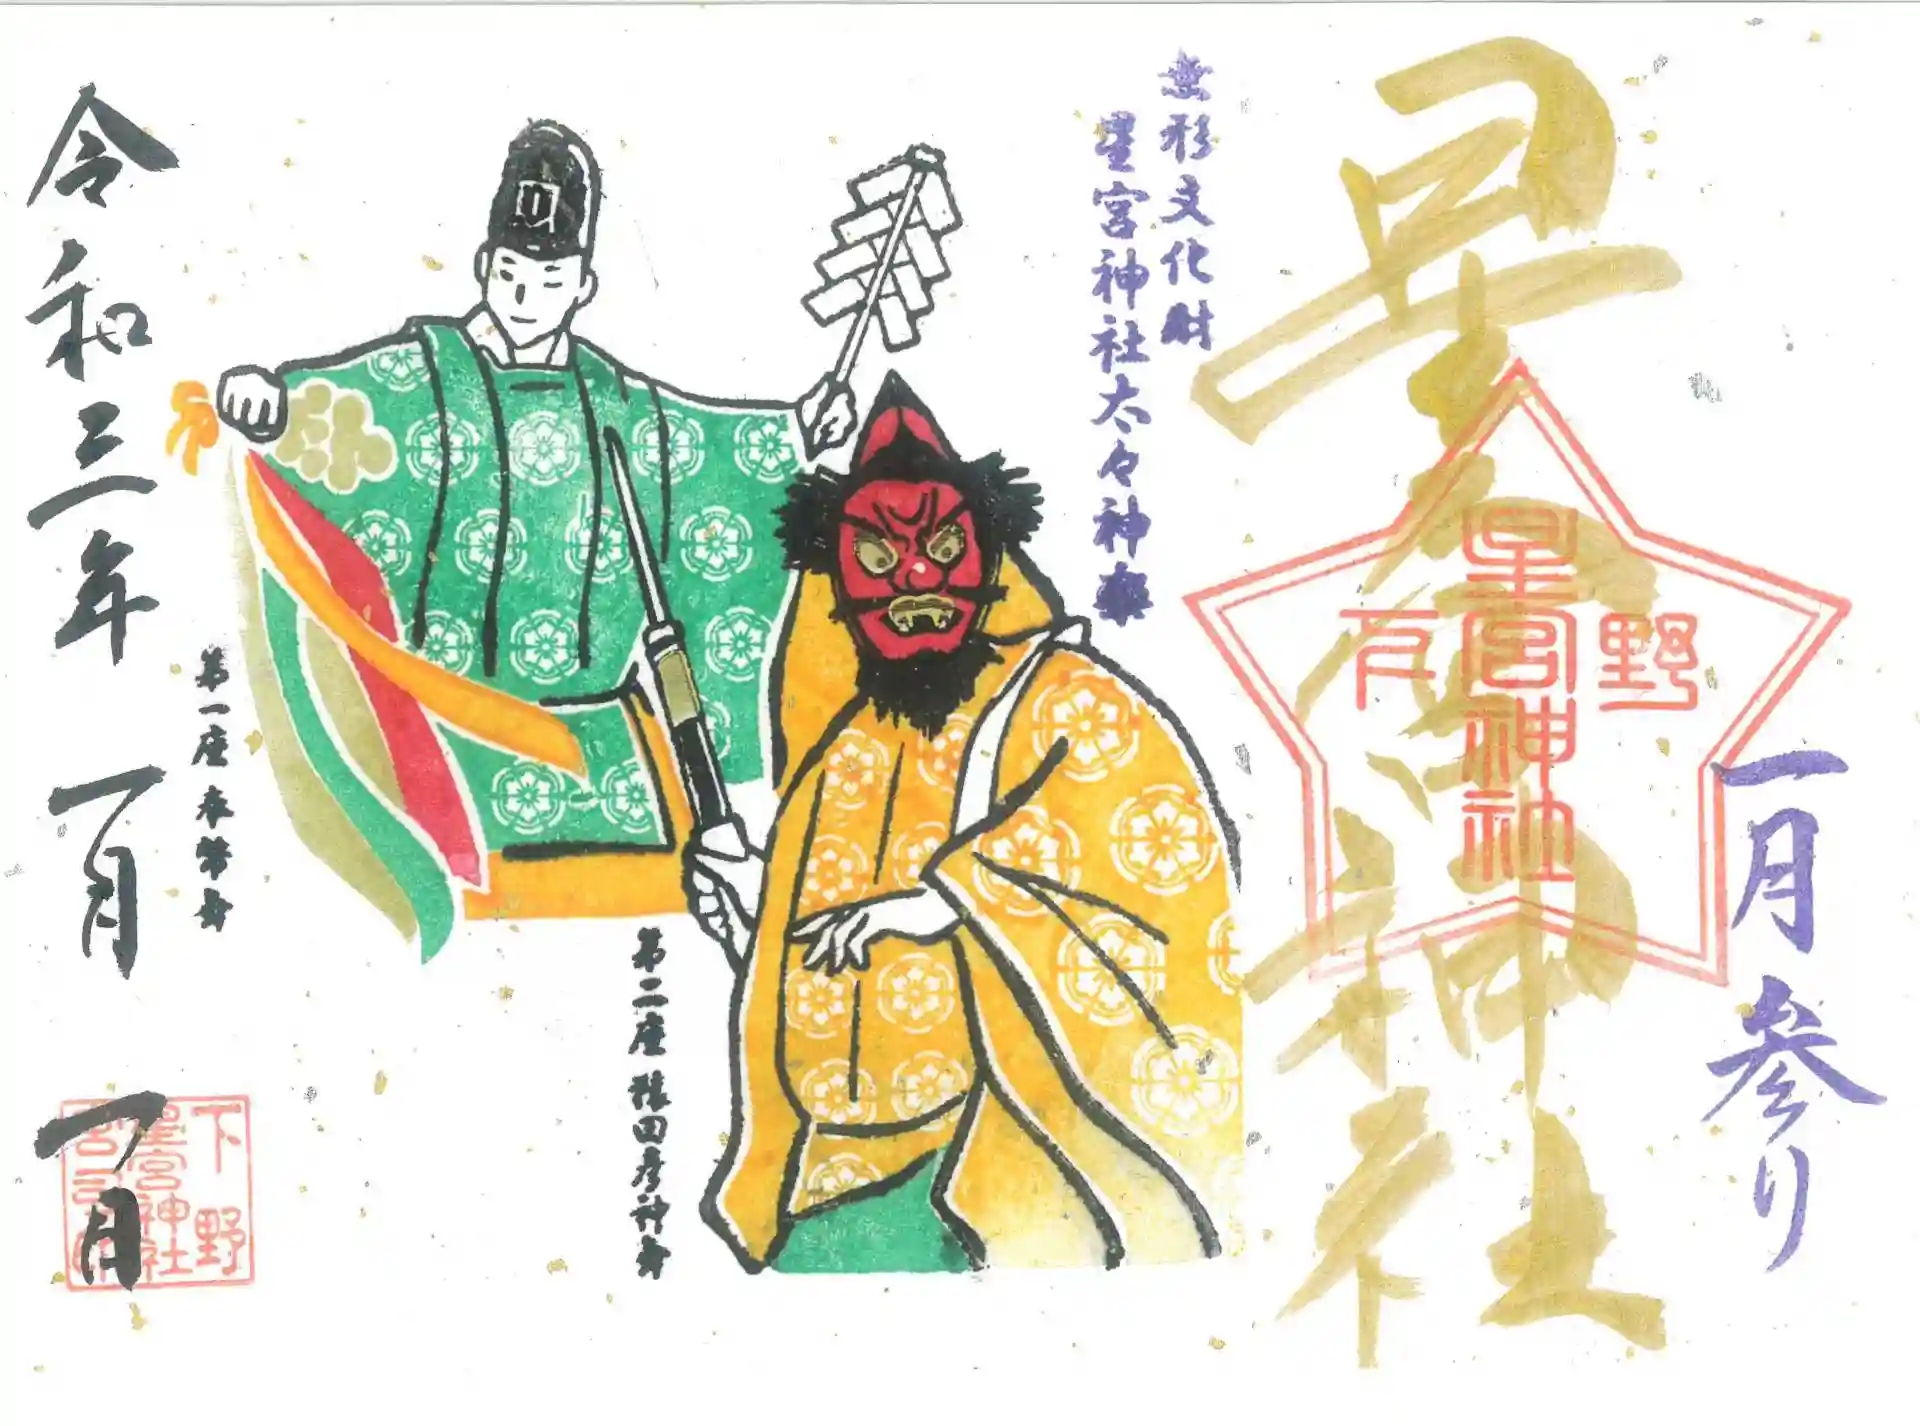 一月参り
星宮神社
下野
星宮神社
無形文化財
星宮神社太々神楽
第二座 猿田彦神舞
第一座 奉幣舞
令和三年 一月 一日
下野
星宮神社
宮司之印